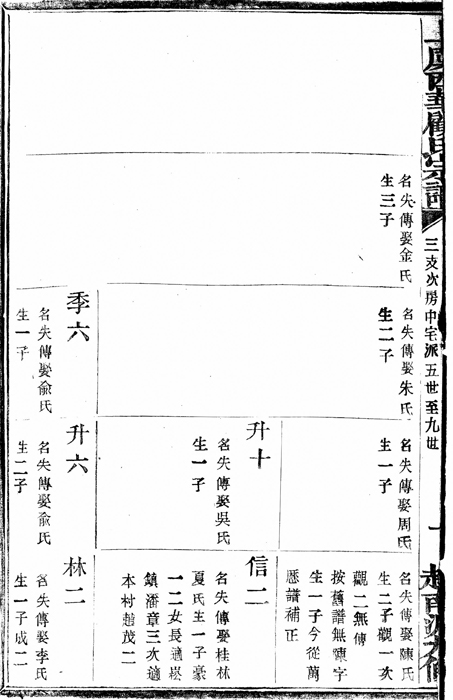 上虞西華顧氏宗譜
三支次房中宅派五世至九世
一
名失傳娶金氏
生三子
名失傳娶朱氏
生二子
季六
名失傳娶俞氏
生一子
名失傳娶周氏
生一子
升十
名失傳娶吳氏
生一子
升六
名失傳娶俞氏
生二子
名失傳娶陳氏
生二子觀一次
觀二無傳
按舊譜無陳字
生一子今從萬
厯譜補正
信二
名失傳娶桂林
夏氏生一子豪
一二女長適崧
鎮潘章三次適
本村趙茂二
林二
名失傳娶李氏
生一子成二